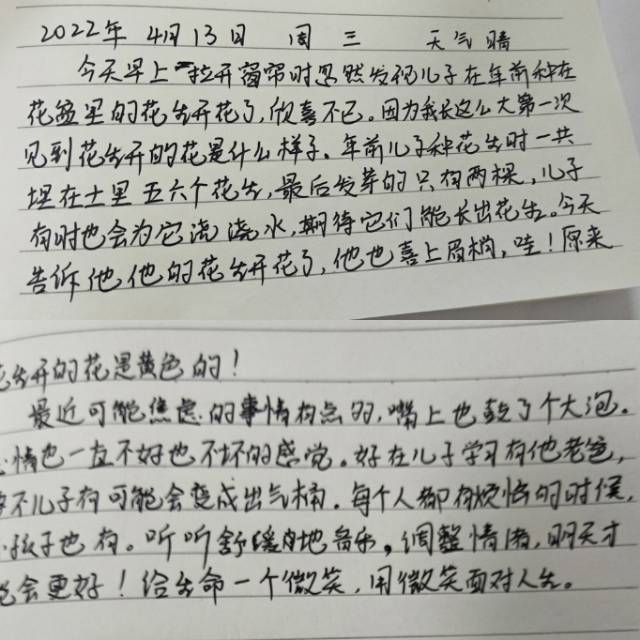 2022年 4月13日 周三 天气晴
今天早上拉开窗帘时忽然发现儿子在年前种在
花盆里的花生开花了,欣喜不已。因为我长这么大第一次
见到花生开的花是什么样子。年前儿子种花生时一共
埋在土里五六个花生,最后发芽的只有两棵,儿子
有时也会为它浇浇水,期待它们能长出花生。今天
告诉他他的花生开花了,他也喜上眉梢,哇!原来
花生开的花是黄色的!
最近可能焦虑的事情有点多,嘴上也鼓了个大泡。
心情也一直不好也不坏的感觉。好在儿子学习有他老爸,
要不儿子有可能会变成出气桶。每个人都有烦恼的时候,
孩子也有。听听舒缓的音乐,调整情绪,明天才
能会更好!给生命一个微笑,用微笑面对人生。